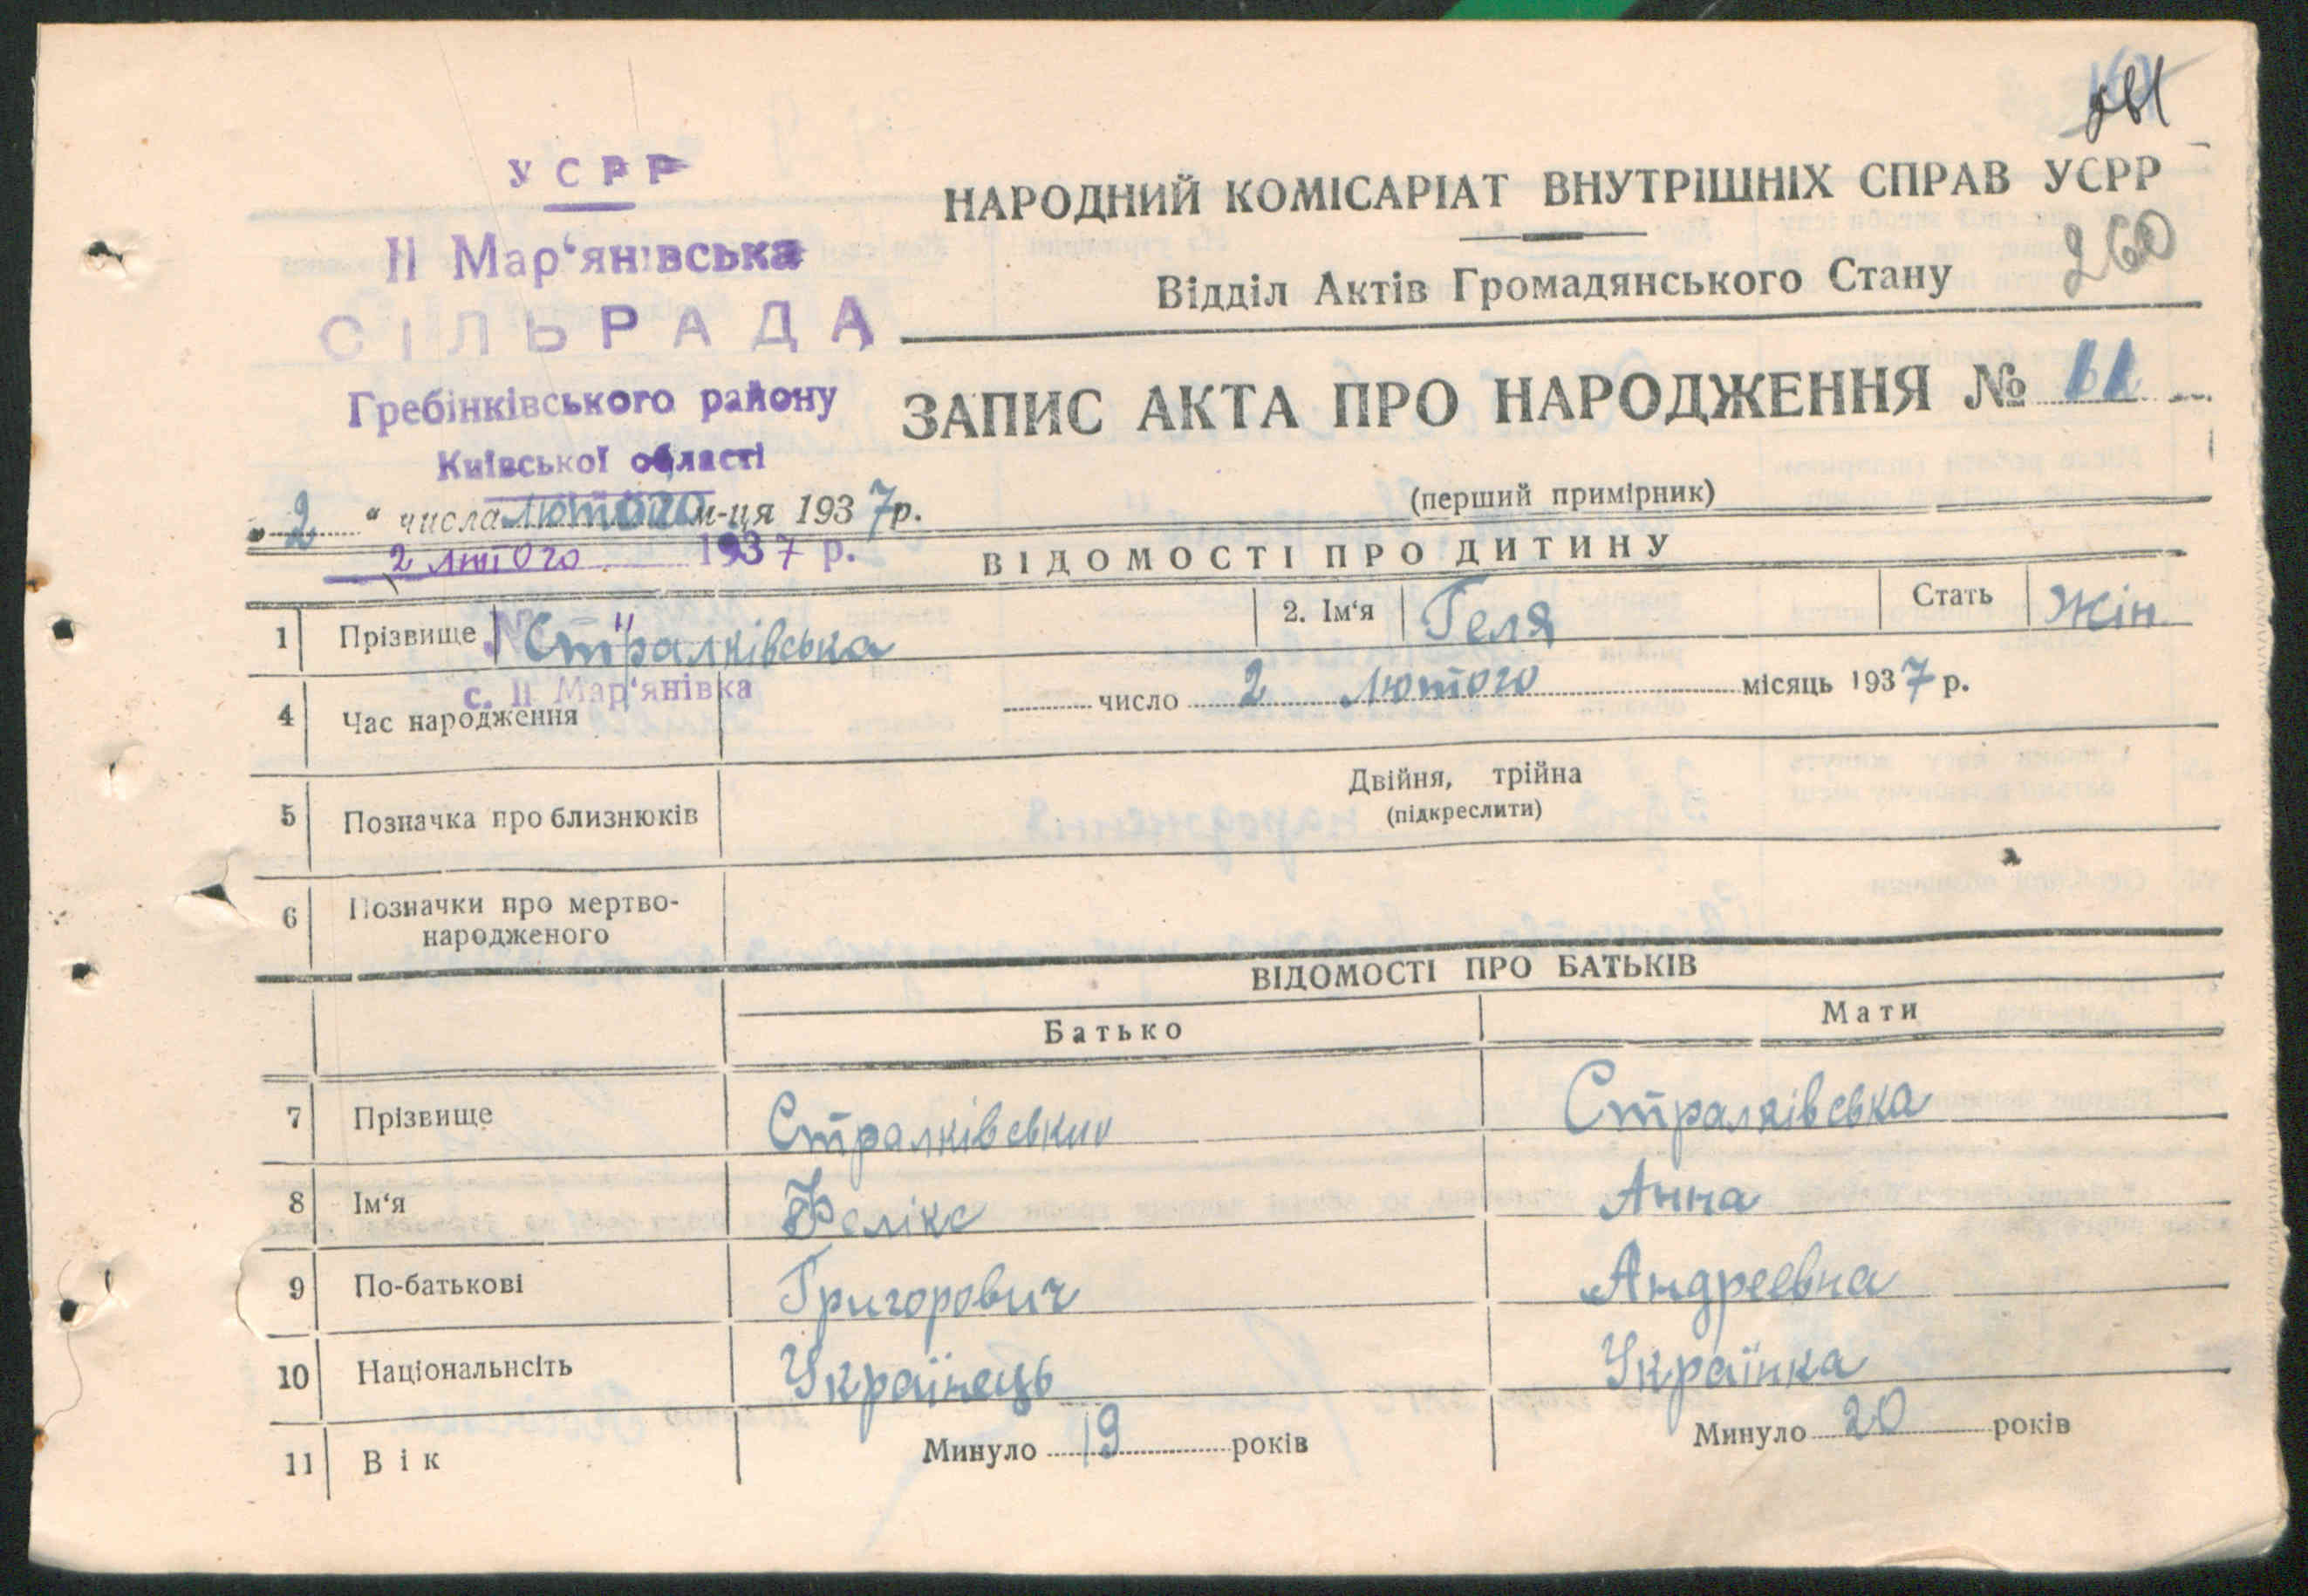 260
УСРР
ІІ Мар‘янівська
СІЛЬРАДА
Гребінківського району
Київської області
2 лютого 1937 р.
№ 11
с. ІІ Мар‘янівка
НАРОДНИЙ КОМІСАРІАТ ВНУТРІШНІХ СПРАВ УСРР
Відділ Актів Громадянського Стану
ЗАПИС АКТА ПРО НАРОДЖЕННЯ № 11
(перший примірник)
„2“ числа лютого м-ця 1937 р.
ВІДОМОСТІ ПРО ДИТИНУ
1 Прізвище Стралківська 2. Ім‘я Геля Стать Жін
4 Час народження число 2 Лютого місяць 1937 р.
5 Позначка про близнюків Двійня, трійна
(підкреслити)
6 Позначки про мертво-
народженого
ВІДОМОСТІ ПРО БАТЬКІВ
Батько Мати
7 Прізвище Стралківський Стралківська
8 Ім‘я Фелікс Анна
9 По-батькові Григорович Андреевна
10 Національнсіть Українець Українка
11 Вік Минуло 19 років Минуло 20 років